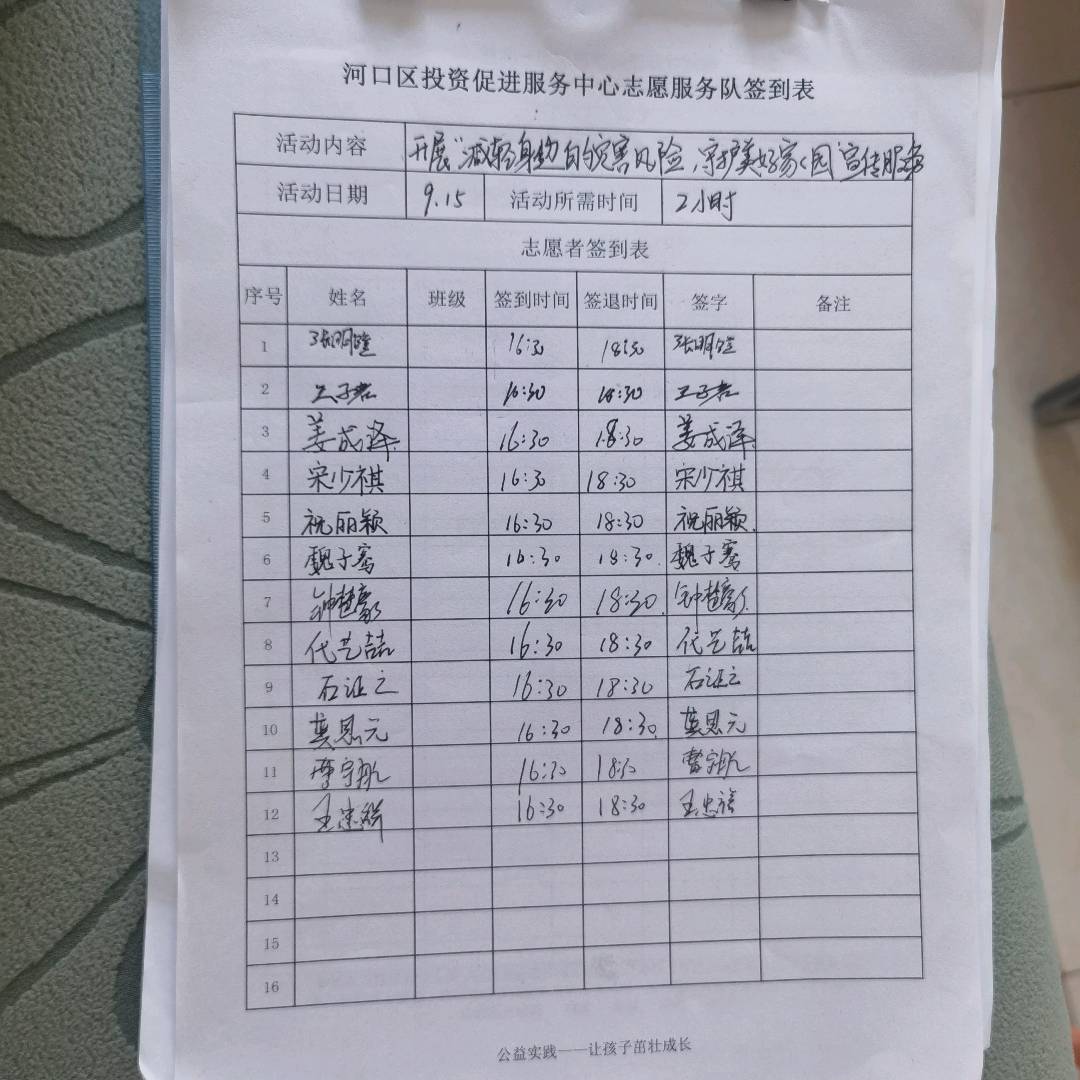 河口区投资促进服务中心志愿服务队签到表
活动内容 开展"减轻身边的灾害风险,守护美好家园"宣传服务
活动日期 9.15 活动所需时间 2小时
志愿者签到表
序号 姓名 班级 签到时间 签退时间 签字 备注
1 16:30 18:30
2 王子君 16:30 18:30 王子君
3 姜成泽 16:30 18:30 姜成泽
4 宋少祺 16:30 18:30 宋少祺
5 祝丽颖 16:30 18:30 祝丽颖
6 魏子骞 16:30 18:30 魏子骞
7 钟楚豪 16:30 18:30 钟楚豪
8 代艺喆 16:30 18:30 代艺喆
9 石证之 16:30 18:30 石证之
10 龚恩元 16:30 18:30 龚恩元
11 16:30 18:30
12 王忠祥 16:30 18:30 王忠禧
13
14
15
16
公益实践——让孩子茁壮成长